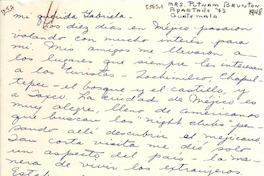 MRS. PUTNAM BRUNTON
APARTADO 743
Guatemala
1948
mi querida Gabriela -
Los diez días en Méjico - pasaron
volando con mucho interés para
mí. Mis amigos me llevaron a
los lugares que siempre les interesan
a los turistas - Xochimilco, Chapul-
tepec - el bosque y el castillo, y
a Taxco. La ciudad de Méjico es
muy alegre, lleno de americanos
que buscan los night clubs, pen-
sando allí descubrir el mejicano.
Tan corta visita me dió solo
un aspecto del país - la ma-
nera de vivir los extranjeros